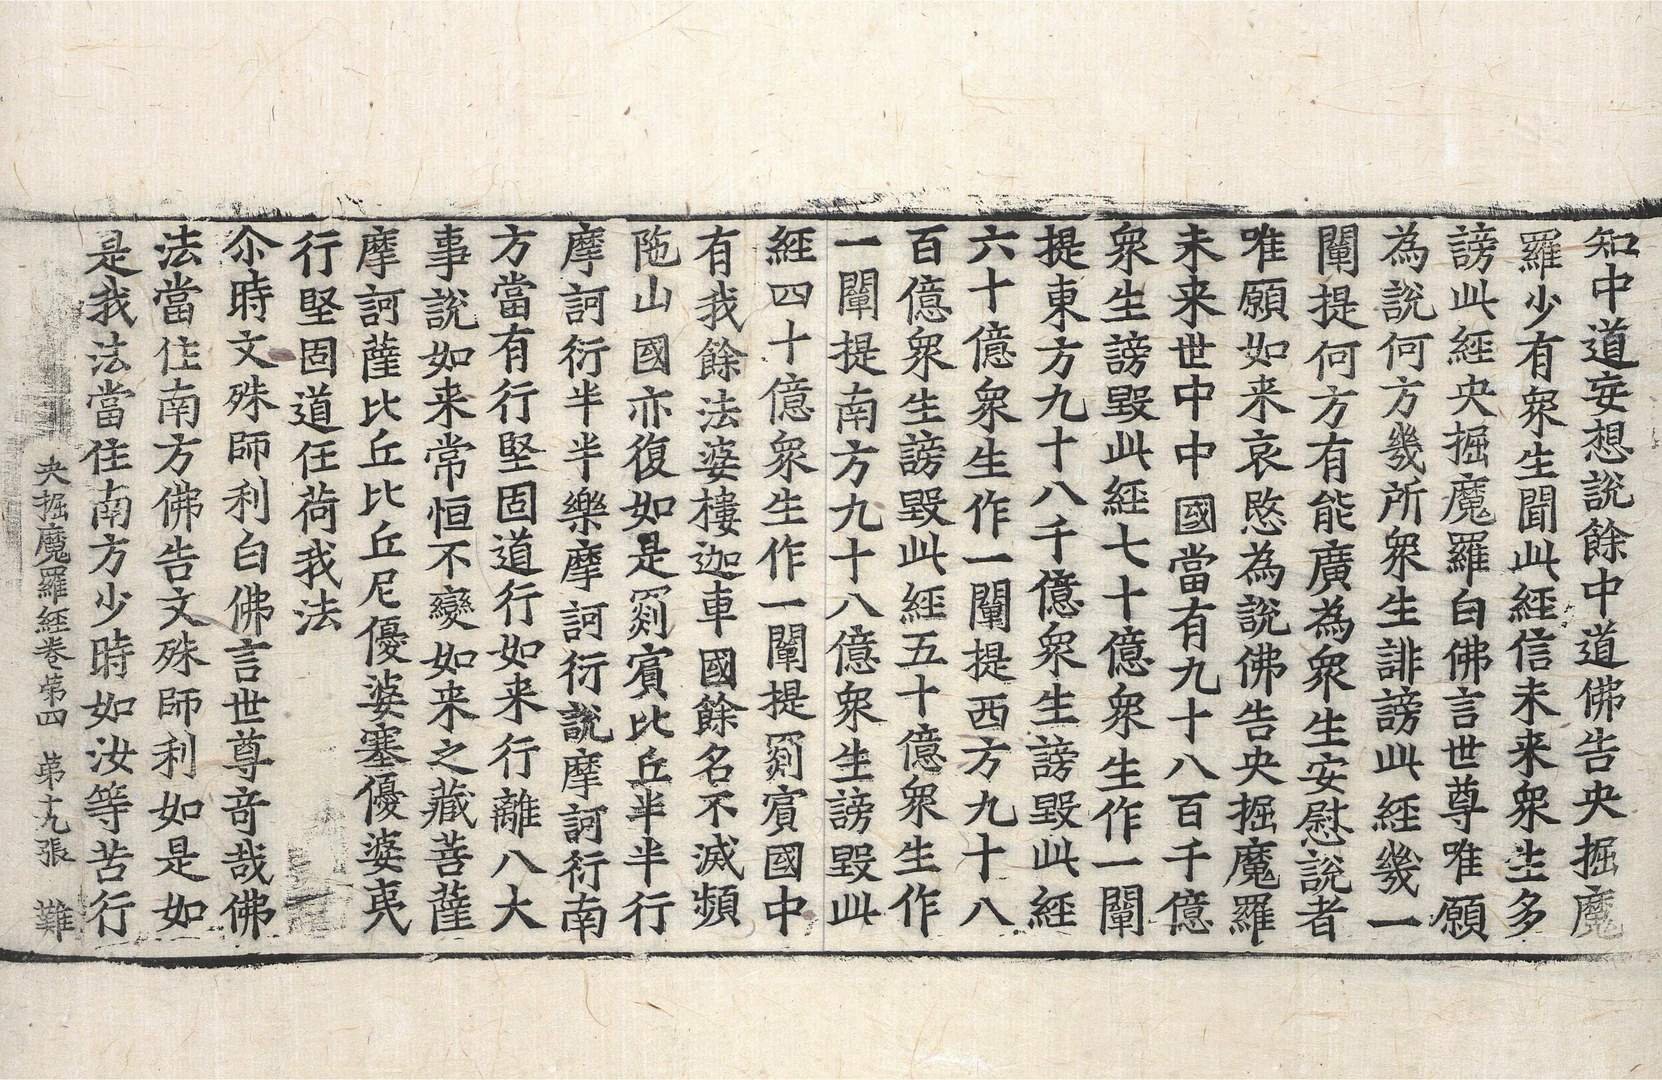 知中道妄想説餘中道佛告央掘魔
羅少有衆生聞此經信未来衆生多
謗此經央掘魔羅白佛言世尊唯願
為説何方幾所衆生誹謗此經幾一
闡提何方有能廣為衆生安慰説者
唯願如来哀愍為説佛告央掘魔羅
未来世中中國當有九十八百千億
衆生謗毀此經七十億衆生作一闡
提東方九十八千億衆生謗毀此經
六十億衆生作一闡提西方九十八
百億衆生謗毀此經五十億衆生作
一闡提南方九十八億衆生謗毀此
經四十億衆生作一闡提罽賓國中
有我餘法婆樓迦車國餘名不滅頻
陁山國亦復如是罽賓比丘半半行
摩訶衍半半樂摩訶衍説摩訶衍南
方當有行堅固道行如来行離八大
事説如来常恒不變如来之藏菩薩
摩訶薩比丘比丘尼優婆塞優婆夷
行堅固道任荷我法
尒時文殊師利白佛言世尊竒哉佛
法當住南方佛告文殊師利如是如
是我法當住南方少時如汝等苦行
央掘魔羅經卷第四 第十九張 難